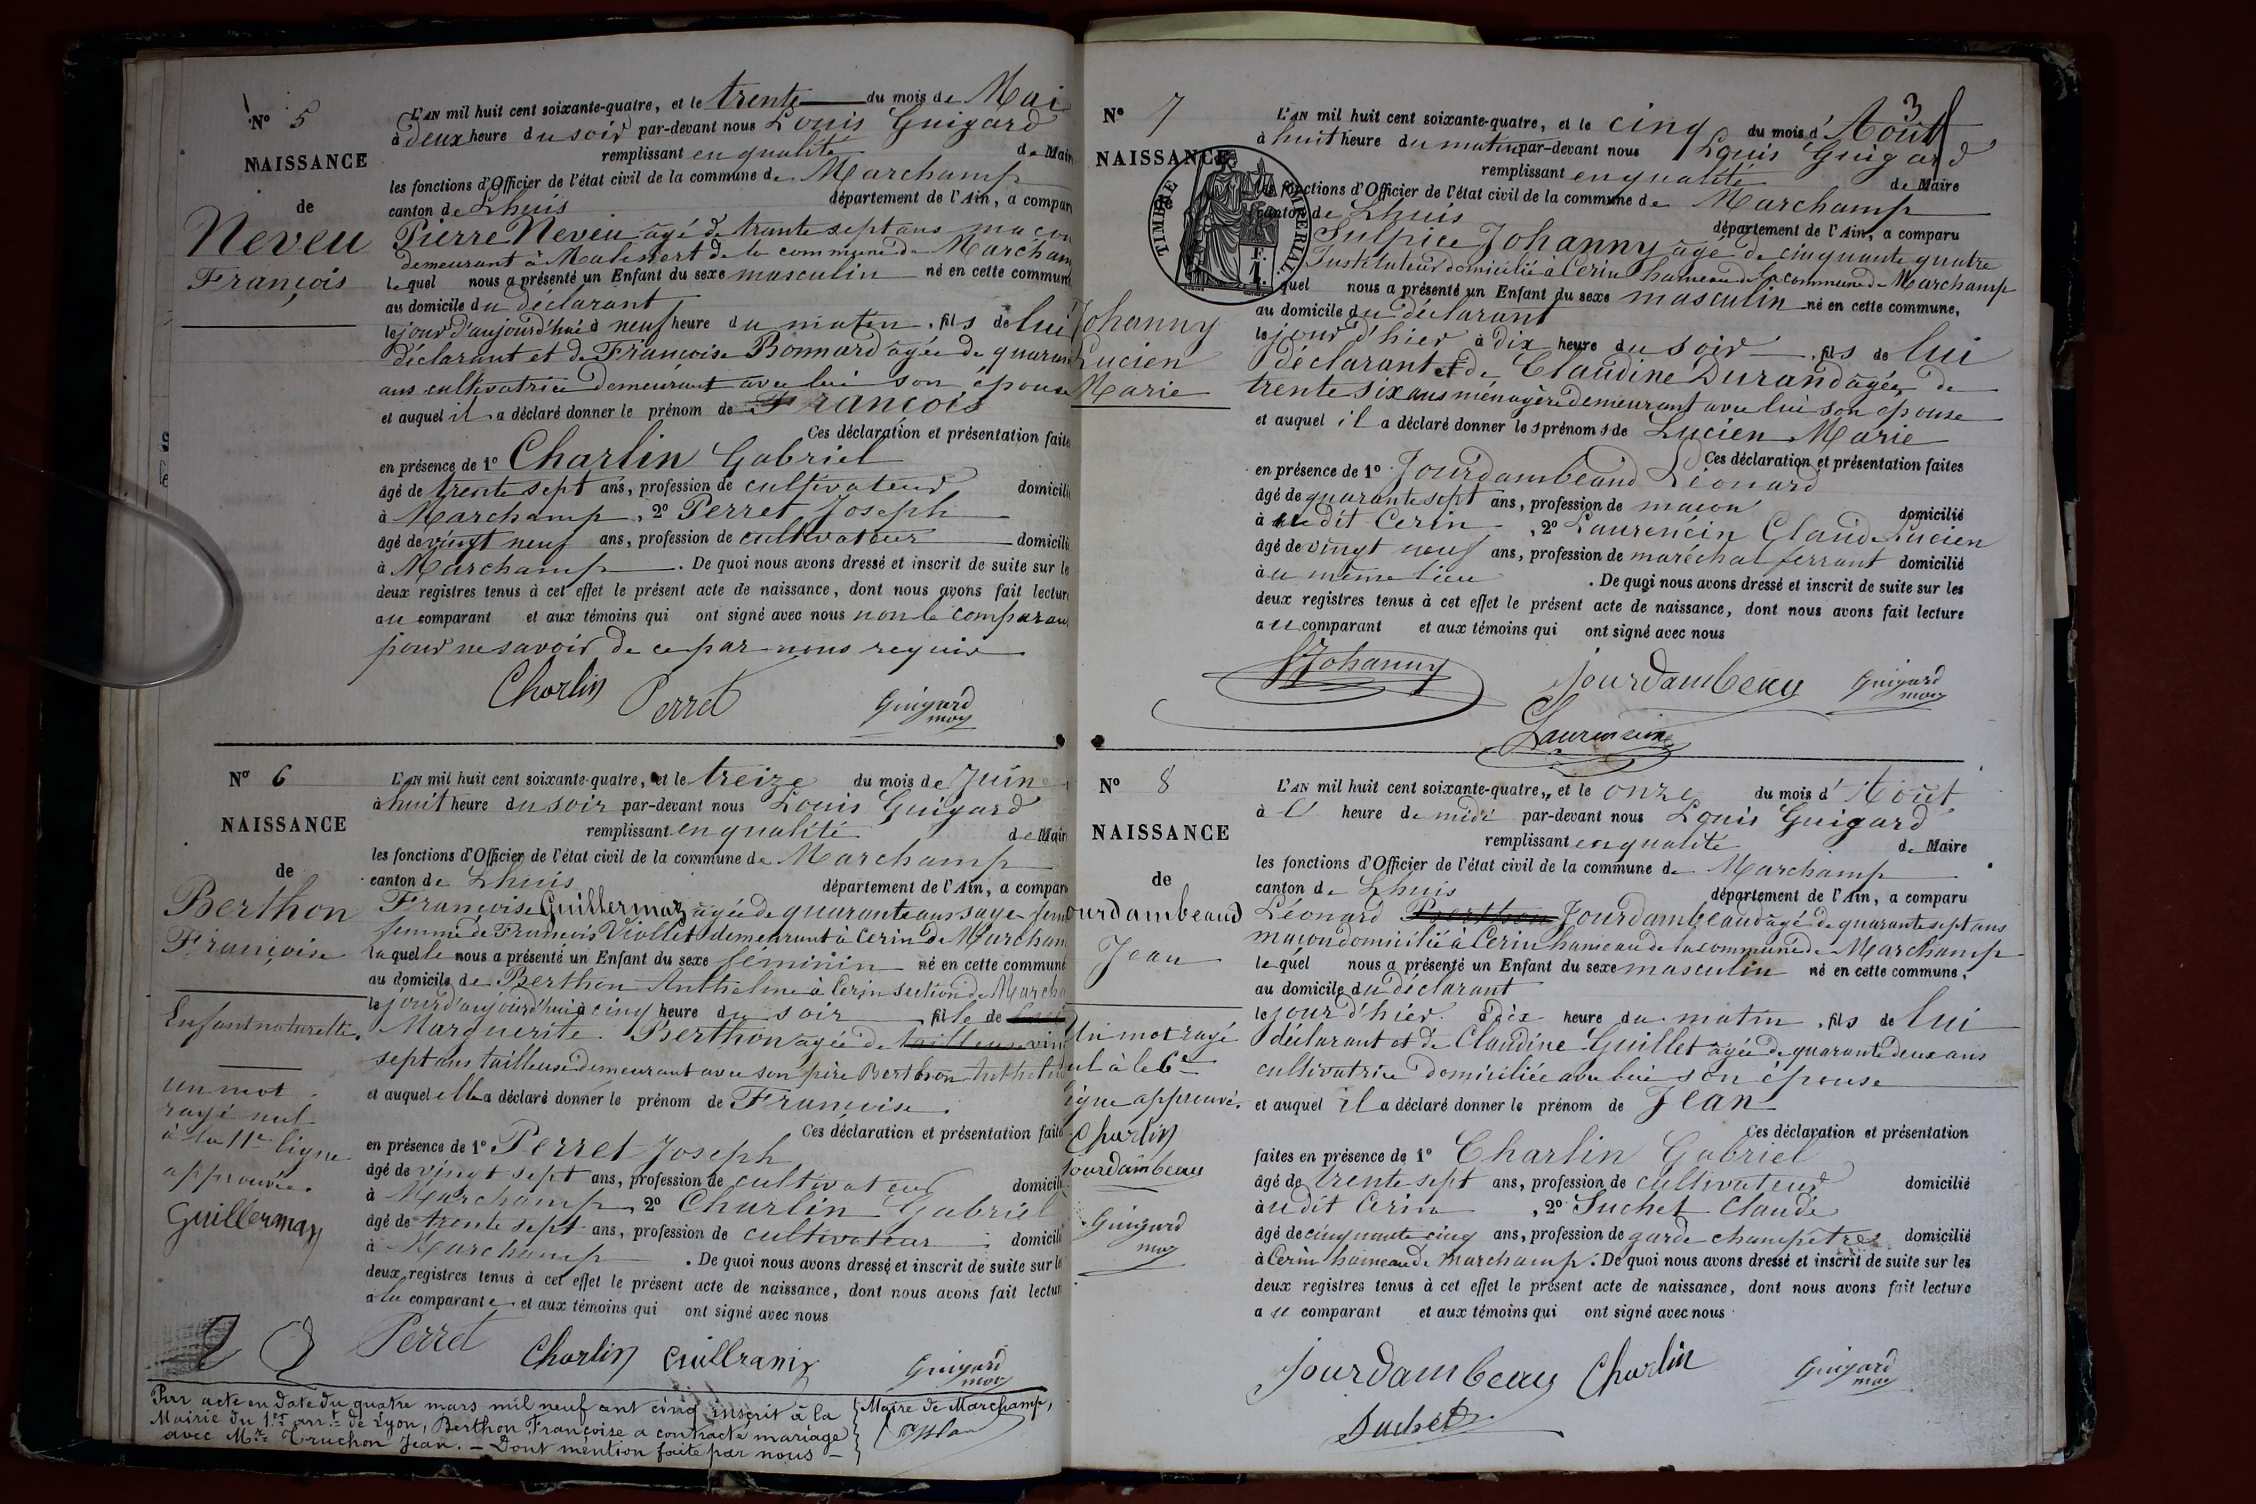 N° 5
NAISSANCE
de
Neveu
François
L'AN mil huit cent soixante-quatre, et le trente du mois de Mai
à deux heure du soir par-devant nous Louis Guigard
remplissant en qualité de Mair
les fonctions d'Officier de l'état civil de la commune de Marchamp
canton de Lhuis département de l'Ain, a compar
Pierre Neveu agé de trante sept ans maçon
demeurant à de la commune de Marcham
lequel nous a présenté un Enfant du sexe masculin né en cette commun
au domicile du déclarant
le jour d'aujourd'hui à neuf heure du matin, fils de lui
déclarant et de Françoise Bonnard agée de quaran
ans cultivatrice demeurant avec lui son épouse
et auquel il a déclaré donner le prénom de François
Ces déclaration et présentation faite
en présence de 1° Charlin Gabriel
âgé de trente sept ans, profession de cultivateur domicili
à Marchamp, 2° Perret Joseph
âgé de vingt neuf ans, profession de cultivateur domicili
à Marchamp. De quoi nous avons dressé et inscrit de suite sur le
deux registres tenus à cet effet le présent acte de naissance, dont nous avons fait lectur
au comparant et aux témoins qui ont signé avec nous non le comparan
pour ne savoir de ce par nous requis
Charlin Perret Guigard
N° 6
NAISSANCE
de
Berthon
Françoise
Enfant naturelle.
un mot
rayé nul
à la 11e ligne
approuvée.
Guillermaz
L'AN mil huit cent soixante-quatre, et le treize du mois de Juin
à huit heure du soir par-devant nous Louis Guigard
remplissant en qualité de Mair
les fonctions d'Officier de l'état civil de la commune de Marchamp
canton de Lhuis département de l'Ain, a compar
Françoise Guillermaz agée de quarante ans sage fem
femme de François Viollet demeurant à Cerin de Marcham
laquelle nous a présenté un Enfant du sexe féminin né en cette commune
au domicile de Berthon Anthelme à Cerin section de Marcha
le jour d'aujourd'hui à cinq heure du soir fille de lui
Marguerite Berthon agée de tailleuse vin
sept ans tailleuse demeurant avec son père Berthon Anthelm
et auquel elle a déclaré donner le prénom de Françoise.
Ces déclaration et présentation faite
en présence de 1° Perret Joseph
âgé de vingt sept ans, profession de cultivateur domicili
à Marchamp, 2° Charlin Gabriel
âgé de trente sept ans, profession de cultivateur domicili
à Marchamp. De quoi nous avons dressé et inscrit de suite sur le
deux registres tenus à cet effet le présent acte de naissance, dont nous avons fait lectur
a la comparante et aux témoins qui ont signé avec nous
Perret Charlin Guigard
Par acte en date du quatre mars mil neuf cent cinq inscrit à la
Mairie du 1er arr.t de Lyon, Berthon Françoise a contracté mariage
avec Mr Truchon Jean. — Dont mention faite par nous —
Maire de Marchamp,
N° 7
NAISSANCE
TIMBRE IMPERIAL
1 F.
Johanny
Lucien
Marie
3
L'AN mil huit cent soixante-quatre, et le cinq du mois d'Août
à huit heure du matin par-devant nous Louis Guigard
remplissant en qualité de Maire
les fonctions d'Officier de l'état civil de la commune de Marchamp
canton de Lhuis département de l'Ain, a comparu
Sulpice Johanny âgé de cinquante quatre
Instituteur domicilié à Cerin hameau de la commune de Marchamp
quel nous a présenté un Enfant du sexe masculin né en cette commune,
au domicile du déclarant
le jour d'hier à dix heure du soir, fils de lui
déclarant et de Claudine Durand agée de
trente six ans ménagère demeurant avec lui son épouse
et auquel il a déclaré donner les prénoms de Lucien Marie
Ces déclaration et présentation faites
en présence de 1° Jourdambeaud Léonard
âgé de quarante sept ans, profession de maçon domicilié
à udit Cerin, 2° Laurencin Claude Lucien
âgé de vingt neuf ans, profession de maréchal ferrant domicilié
à u même lieu. De quoi nous avons dressé et inscrit de suite sur les
deux registres tenus à cet effet le présent acte de naissance, dont nous avons fait lecture
au comparant et aux témoins qui ont signé avec nous
Johanny Jourdambeau Guigard
N° 8
NAISSANCE
de
ourdambeaud
Jean
Un mot rayé
nul à le 6e
ligne approuvé.
Charlin
Jourdambeau
Guigard
L'AN mil huit cent soixante-quatre, et le onze du mois d'Août
à l' heure de midi par-devant nous Louis Guigard
remplissant en qualité de Maire
les fonctions d'Officier de l'état civil de la commune de Marchamp
canton de Lhuis département de l'Ain, a comparu
Léonard Berthon Jourdambeaud agé de quarante sept ans
maçon domicilié à Cerin hameau de la commune de Marchamp
lequel nous a présenté un Enfant du sexe masculin né en cette commune,
au domicile du déclarant
le jour d'hier à dix heure du matin, fils de lui
déclarant et de Claudine Guillet agée de quarante deux ans
cultivatrice domiciliée avec lui son épouse
et auquel il a déclaré donner le prénom de Jean
Ces déclaration et présentation
faites en présence de 1° Charlin Gabriel
âgé de trente sept ans, profession de cultivateur domicilié
à udit Cerin, 2° Suchet Claude
âgé de cinquante cinq ans, profession de garde champêtre domicilié
à Cerin hameau de Marchamp. De quoi nous avons dressé et inscrit de suite sur les
deux registres tenus à cet effet le présent acte de naissance, dont nous avons fait lecture
au comparant et aux témoins qui ont signé avec nous
Jourdambeau Charlin Guigard
Suchet